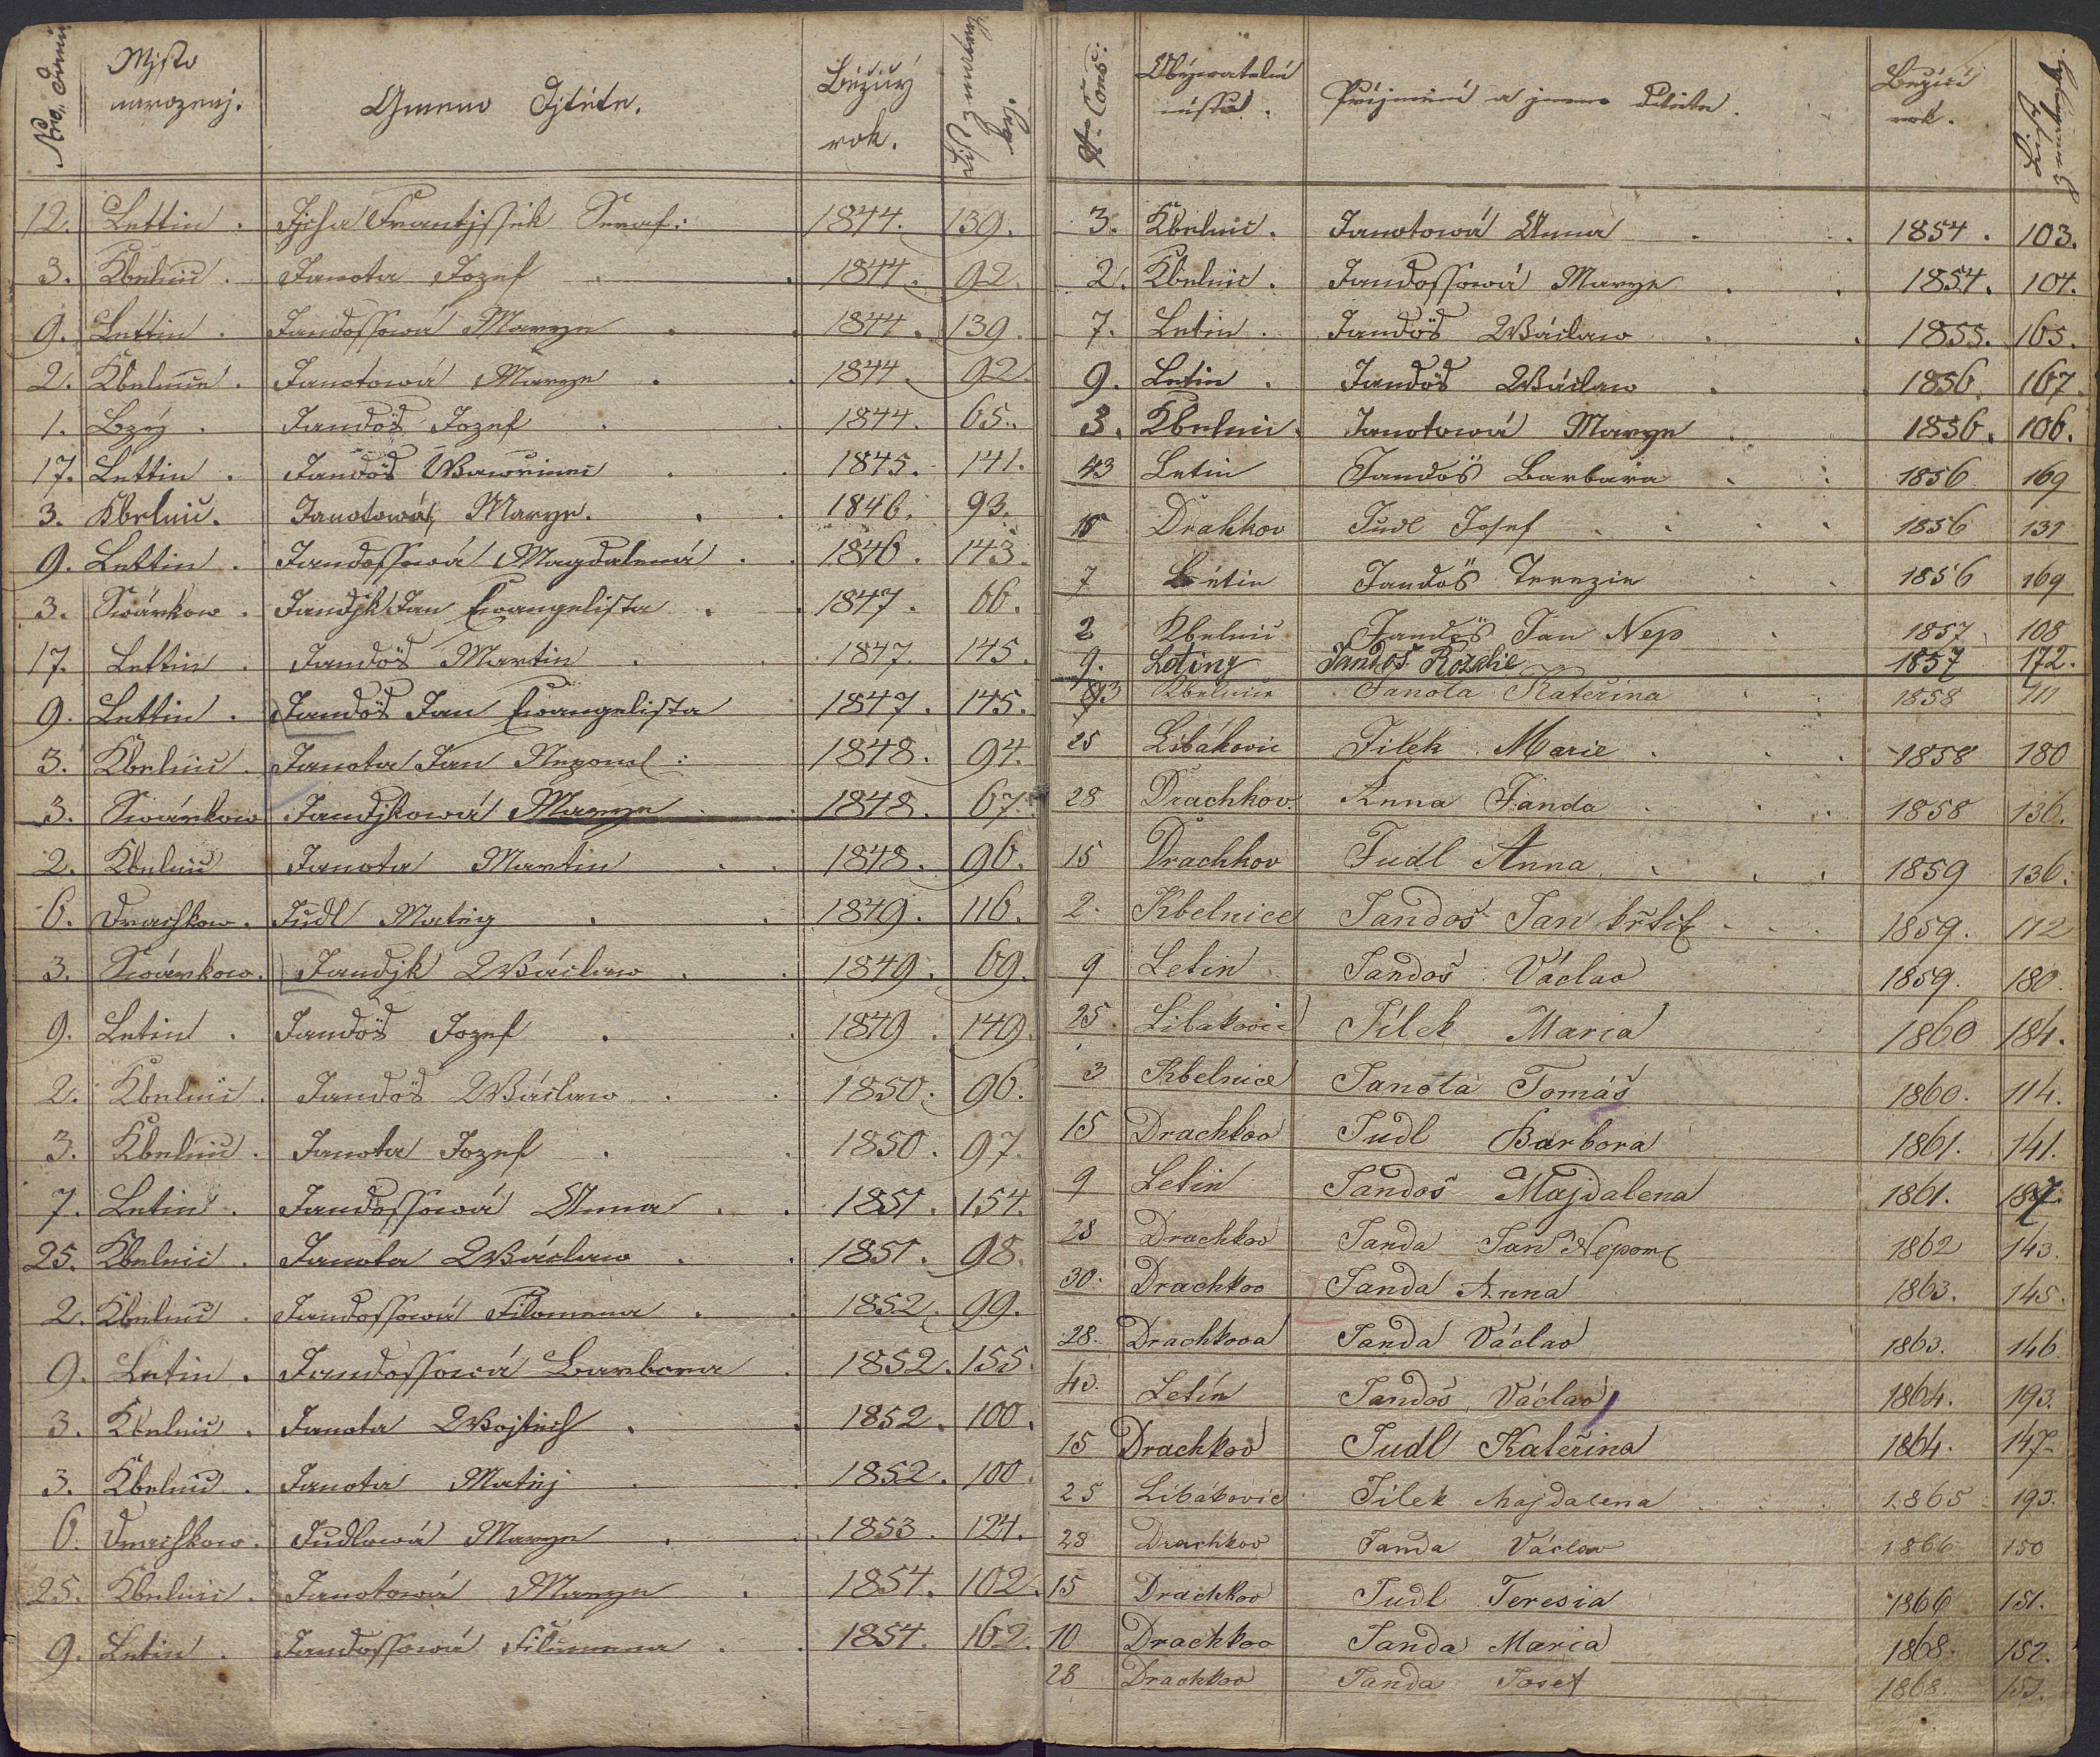 Nro. domu
Mjsto
narozenj.
Gmeno Djtěte.
Běžicý
rok.
List
No. Cons:
místa.
Příjmení a jmeno dítěte.
Bežící
rok.
List
12. Lettin. Jjcha Frantjssek Seraf: 1844. 139.
3. Kbelnic. Janota Jozef 1844. 92.
9. Lettin. Jandossowá Marye 1844. 139.
2. Kbelnic. Janotowá Marye 1844. 92.
1. Bzý. Jandoš Jozef 1844. 65.
17. Lettin. Jandoš Wawřinec 1845. 141.
3. Kbelnic. Janotowá Marye. 1846. 93.
9. Lettin. Jandossowá Magdalená 1846. 143.
3. Swárkow. Jandjk Jan Ewangelista 1847. 66.
17. Lettin. Jandoš Martin 1847. 145.
9. Lettin. Jandoš Jan Ewangelista 1847. 145.
3. Kbelnic. Janota Jan Nepomc: 1848. 94.
3. Swárkow Jandjkowá Marye 1848. 67.
2. Kbelnic Janota Martin 1848. 96.
6. Drachkow. Judl Matěg 1849. 116.
3. Swárkow. Jandjk Wáclaw 1849. 69.
9. Letin. Jandoš Jozef 1849. 149.
2. Kbelnic. Jandoš Wáclaw 1850. 96.
3. Kbelnic. Janota Jozef 1850. 97.
7. Letin. Jandossowá Anna 1851. 154.
25. Kbelnic. Janota Wáclaw 1851. 98.
2. Kbelnic. Jandossowá Filomena 1852. 99.
9. Letin. Jandossowá Barbora 1852. 155.
3. Kbelnic. Janota Wojtěch 1852. 100.
3. Kbelnic. Janota Matěj 1852. 100.
6. Drachkow. Judlowá Marye 1853. 124.
25. Kbelnic. Janotowá Marye 1854. 102.
9. Letin. Jandossowá Filomena 1854. 162.
3. Kbelnic. Janotowá Anna 1854. 103.
2. Kbelnic. Jandossowá Marye 1854. 104.
7. Letin. Jandoš Wáclaw 1855. 165.
9. Letin. Jandoš Wáclaw 1856. 167.
3. Kbelnic. Janotowá Marye 1856. 106.
43 Letin Jandoš Barbara 1856 169
15 Drahkov Judl Josef 1856 131
7 Letin Jandoš Terezie 1856 169
2 Kbelnic Jandoš Jan Nep 1857 108
9. Letiny Jandoš Rozalie 1857 172.
3 Kbelnice Janota Kateřina 1858 111
25 Libákovic Jílek Marie 1858 180
28 Drachkov. Anna Janda 1858 136.
15 Drachkov Judl Anna 1859 136.
2. Kbelnice Jandoš Jan křtit. 1859. 112
9 Letin Jandoš Václav 1859. 180.
25 Libakovic Jílek Maria 1860 184.
3 Kbelnice Janota Tomáš 1860. 114.
15 Drachkov Judl Barbora 1861. 141.
9 Letin Jandoš Majdalena 1861. 187.
28 Drachkov Janda Jan Nepom. 1862 143.
30. Drachkov Janda Anna 1863. 145.
28. Drachkova Janda Václav 1863. 146.
43. Letín Jandoš Václav 1864. 193.
15 Drachkov Judl Kateřina 1864. 147.
25 Libákovic Jílek Majdalena 1865 193.
28 Drachkov Janda Václav 1866 150
15 Drachkov Judl Teresia 1866 151.
10 Drachkov Janda Maria 1868. 152.
28 Drachkov Janda Josef 1868. 153.